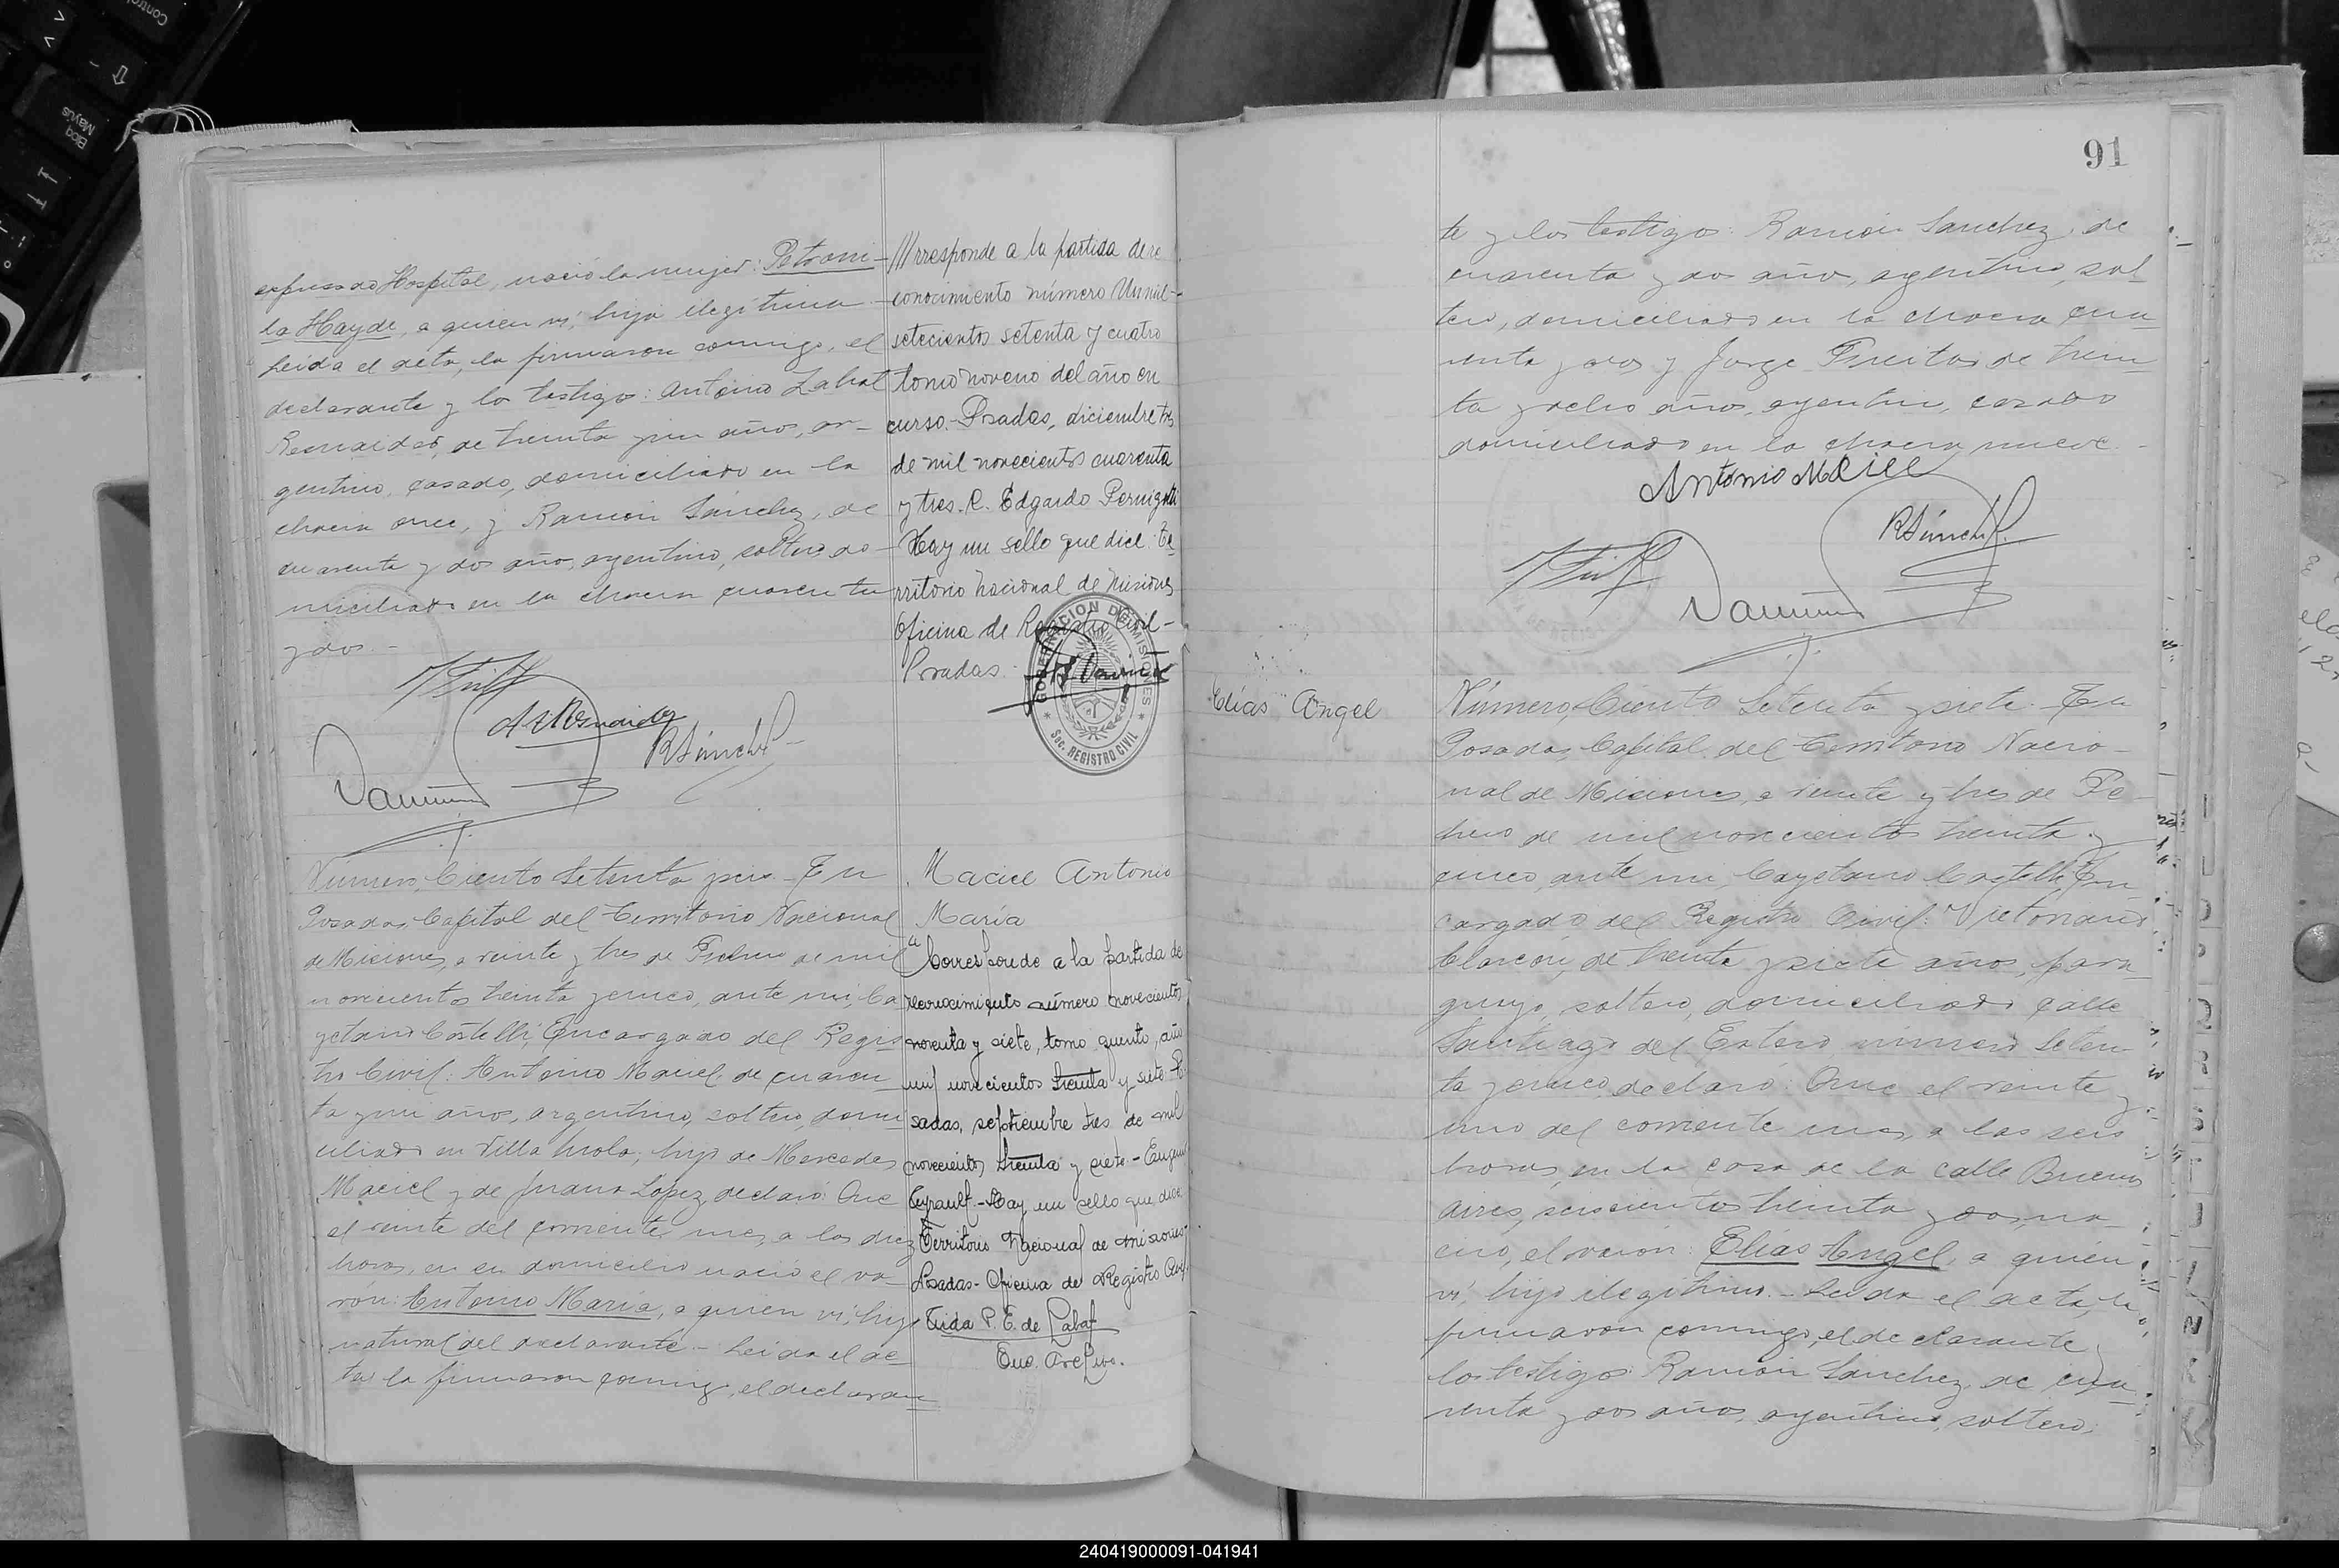 expresado Hospital, nació la mujer: Petroni-
la Hayde, a quien ví, hija ilegítima
Leida el acta, la firmaron conmigo, el
declarante y los testigos: Antonio Zabat
de treinta y un años, ar-
gentino, casado, domiciliado en la
chacra once, y Ramón Sánchez, de
cuarenta y dos años, argentino, soltero, do-
miciliado en la chacra cuarenta
y dos.-
RSánchez
///rresponde a la partida de re
conocimiento número Un mil-
setecientos setenta y cuatro
tomo noveno del año en
curso.- Posadas, diciembre tres
de mil novecientos cuarenta
y tres. C. Edgardo Pernigotti
Hay un sello que dice: Te
rritorio Nacional de Misiones
Oficina de Registro Civil-
Posadas.
GOBERNACION DE MISIONES
Sec. REGISTRO CIVIL
Número, Ciento Setenta y seis.- En
Posadas, Capital del Territorio Nacional
de Misiones, a veinte y tres de Febrero de mil
novecientos treinta y cinco, ante mi, Ca
yetano Castelli, Encargado del Regis
tro Civil: Antonio Maciel, de cuaren
ta y un años, argentino, soltero, domi
ciliado en Villa Urola, hijo de Mercedes
Maciel y de Juana Lopez, declaró: Que
el veinte del corriente mes, a las diez
horas, en su domicilio nació el va
rón: Antonio María, a quien ví, hijo
natural del declarante.- Leida el ac
ta, la firmaron conmigo, el declaran
Maciel Antonio
María
"Corresponde a la partida de
reconocimiento número novecientos
noventa y siete, tomo quinto, año
mil novecientos treinta y siete- Po
sadas, septiembre tres de mil
novecientos treinta y siete.- Eugenio
Hay un sello que dice:
Territorio Nacional de Misiones
Posadas- Oficina de Registro Civil
Tuda P. E. de Labat
Enc. Archivo.
91
te y los testigos: Ramón Sanchez, de
cuarenta y dos años, argentino, sol
tero, domiciliado en la chacra cua
renta y dos y Jorge Freitas de trein
ta y ocho años, argentino, casado
domiciliado en la chacra nueve.-
Antonio Maciel
RSánchez
Elías Angel
Número, Ciento Setenta y siete.- En
Posadas, Capital del Territorio Nacio-
nal de Misiones, a veinte y tres de Fe-
brero de mil novecientos treinta y
cinco, ante mi, Cayetano Castelli, En
cargado del Registro Civil: Victoriano
Alarcón, de treinta y siete años, para
guayo, soltero, domiciliado calle
Santiago del Estero número Seten
ta y cinco, declaró: Que el veinte y
uno del corriente mes, a las seis
horas, en la casa de la calle Buenos
Aires, seiscientos treinta y dos, na-
ció, el varón: Elías Angel, a quien
ví, hijo ilegítimo.- Leida el acta, la
firmaron conmigo, el declarante y
los testigos: Ramón Sánchez, de cua-
renta y dos años, argentino, soltero,
240419000091-041941